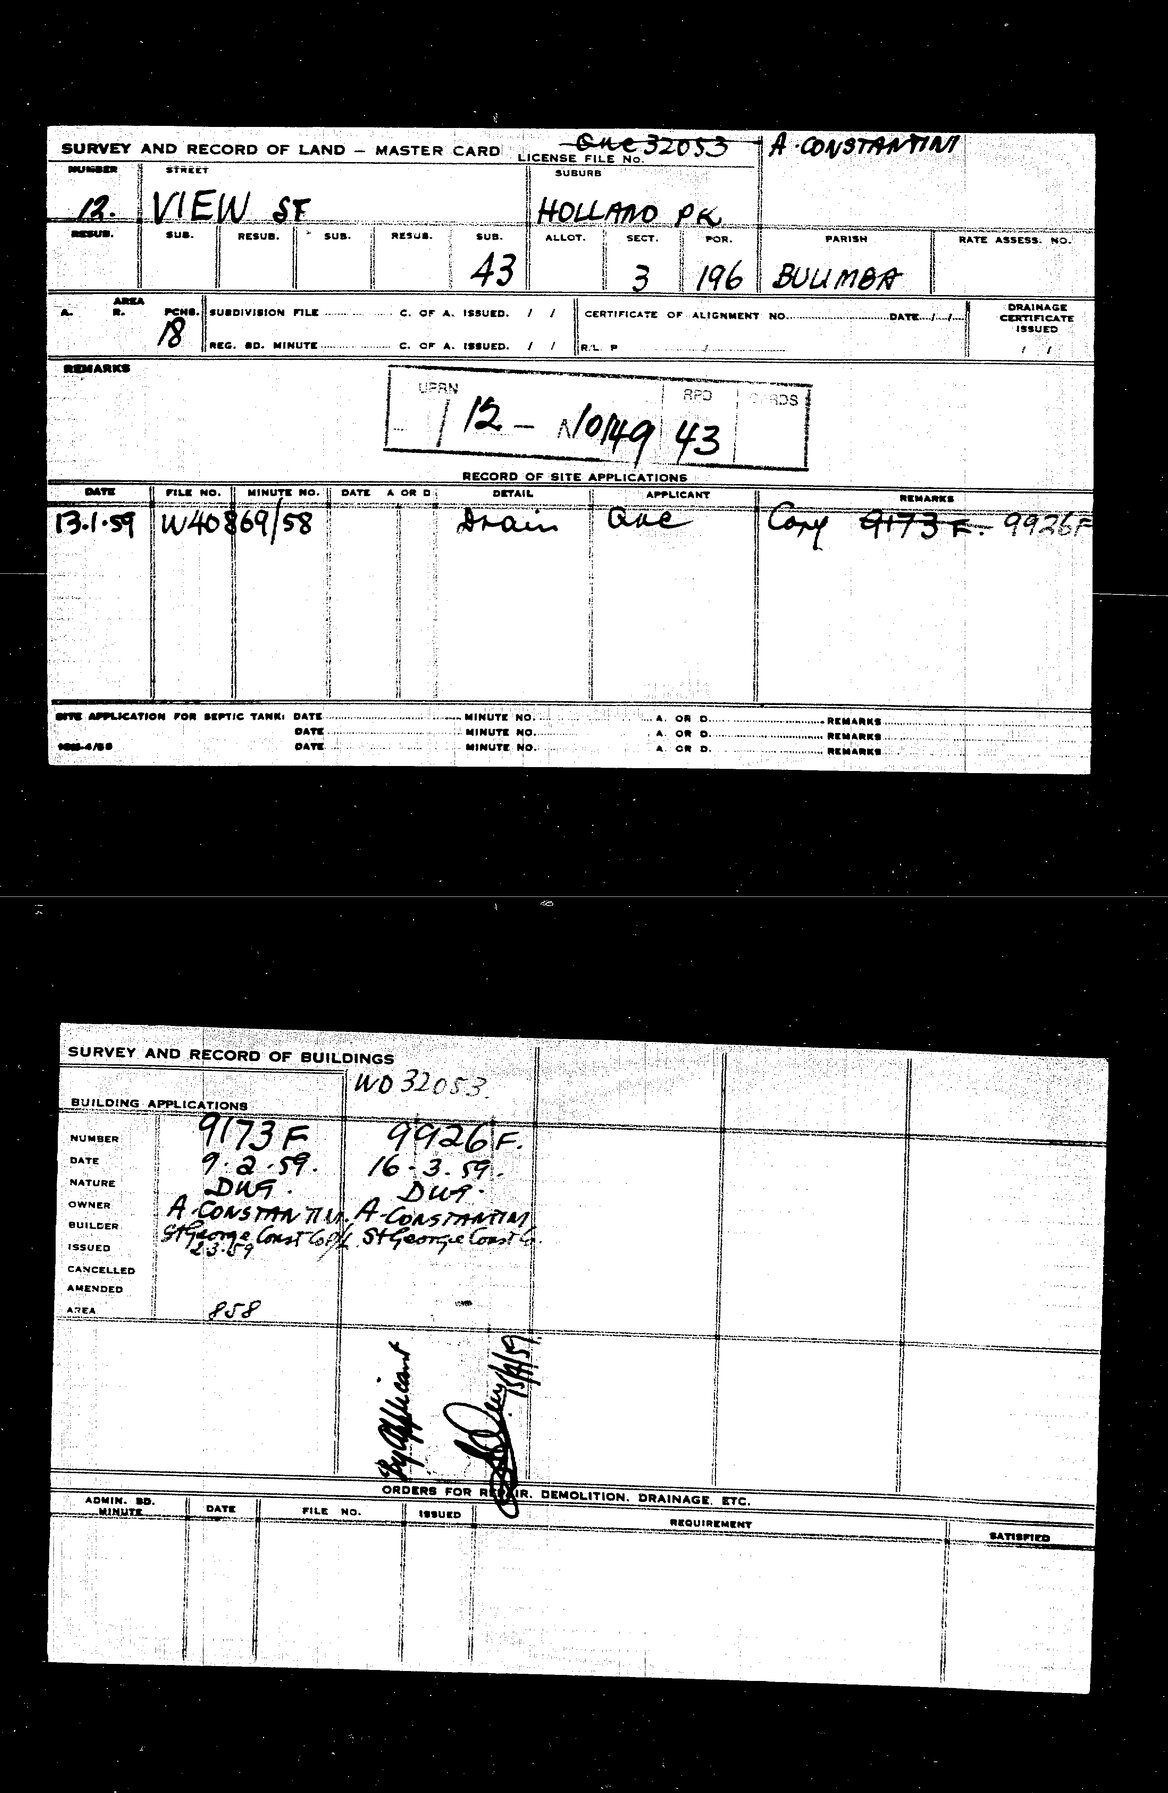 32053 A. CONSTANTINI
SURVEY AND RECORD OF LAND – MASTER CARD LICENSE FILE NO.
NUMBER STREET SUBURB
12. VIEW ST HOLLAND PK
RESUB. SUB. RESUB. SUB. RESUB. SUB. ALLOT. SECT. POR. PARISH RATE ASSESS. NO.
43 3 196 BULIMBA
AREA
A. R. PCHS. SUBDIVISION FILE C. OF A. ISSUED. / / CERTIFICATE OF ALIGNMENT NO. DATE / / DRAINAGE CERTIFICATE ISSUED
18 REG. BD. MINUTE C. OF A. ISSUED. / / R/L. P / / /
REMARKS
UPRN RPD CARDS
12 – 43
RECORD OF SITE APPLICATIONS
DATE FILE NO. MINUTE NO. DATE A OR D DETAIL APPLICANT REMARKS
13.1.59 W40869/58 Drain 9173 F. 9926F
SITE APPLICATION FOR SEPTIC TANK: DATE MINUTE NO. A. OR D. REMARKS
DATE MINUTE NO. A. OR D. REMARKS
DATE MINUTE NO. A. OR D. REMARKS
SURVEY AND RECORD OF BUILDINGS
WD 32053.
BUILDING APPLICATIONS
NUMBER 9173 F 9926 F.
DATE 9.2.59. 16.3.59.
NATURE DWG. DWG.
OWNER A. CONSTANTINI. A. CONSTANTINI
BUILDER St George Const Co P/L St George Const Co.
ISSUED 2.3.59
CANCELLED
AMENDED
AREA 858
By Applicant
ORDERS FOR REPAIR, DEMOLITION, DRAINAGE, ETC.
ADMIN. BD. MINUTE DATE FILE NO. ISSUED REQUIREMENT SATISFIED